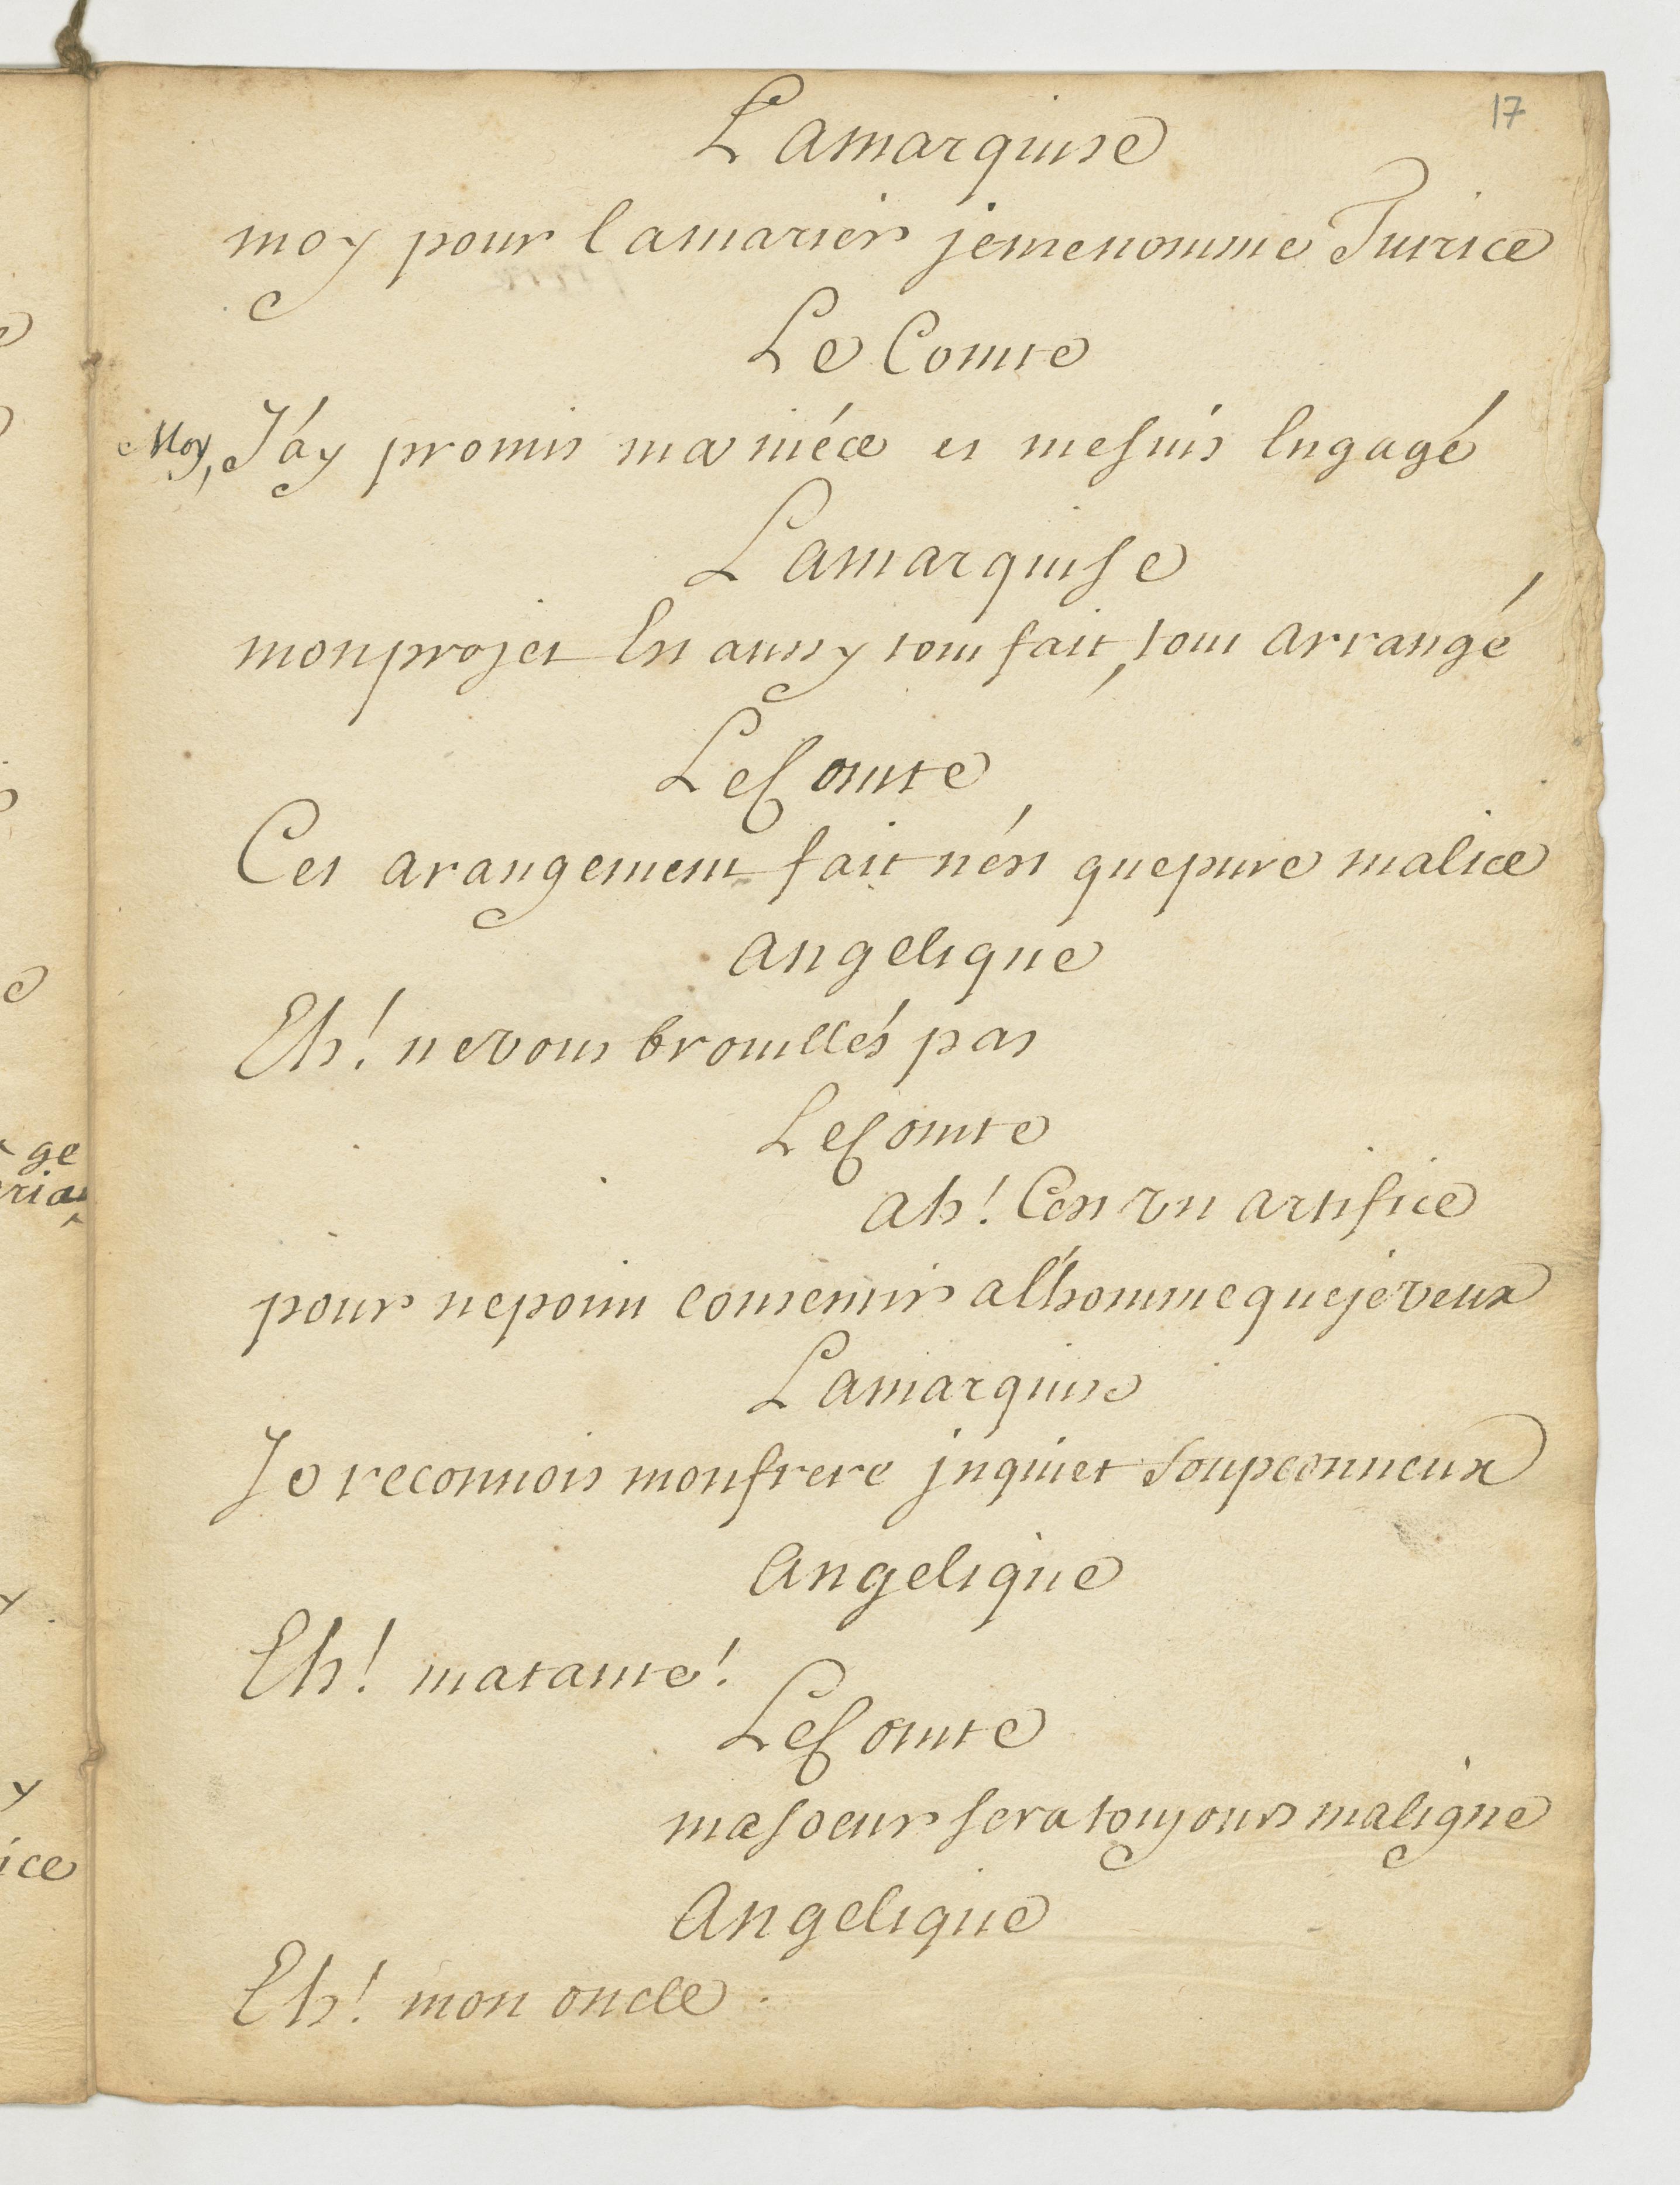 17
Lamarquise
moy pour lamarier jemenomme Tutrice
Le Comte
Moy, J'ay promis ma niéce et mesuis Engagé
Lamarquise
monprojet Est aussy tout fait, tout arrangé
LeComte
Cet arangement fait n'ést quepure malice
angelique
Eh! nevous brouillés pas
LeComte
ah! C'est un artifice
pour nepoint consentir a l'homme queje veux
Lamarquise
Je reconnois monfrere jnquiet soupconneux
Angelique
Eh! matante!
LeComte
masoeur sera toujours maligne
Angelique
Eh! mon oncle.